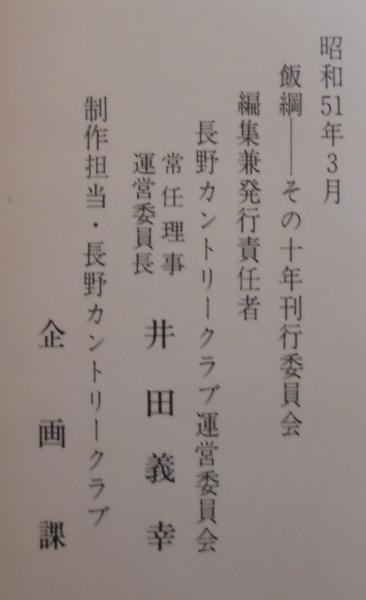 昭和51年3月
飯綱──その十年刊行委員会
編集兼発行責任者
長野カントリークラブ運営委員会
常任理事
運営委員長
井田義幸
制作担当・長野カントリークラブ
企画課